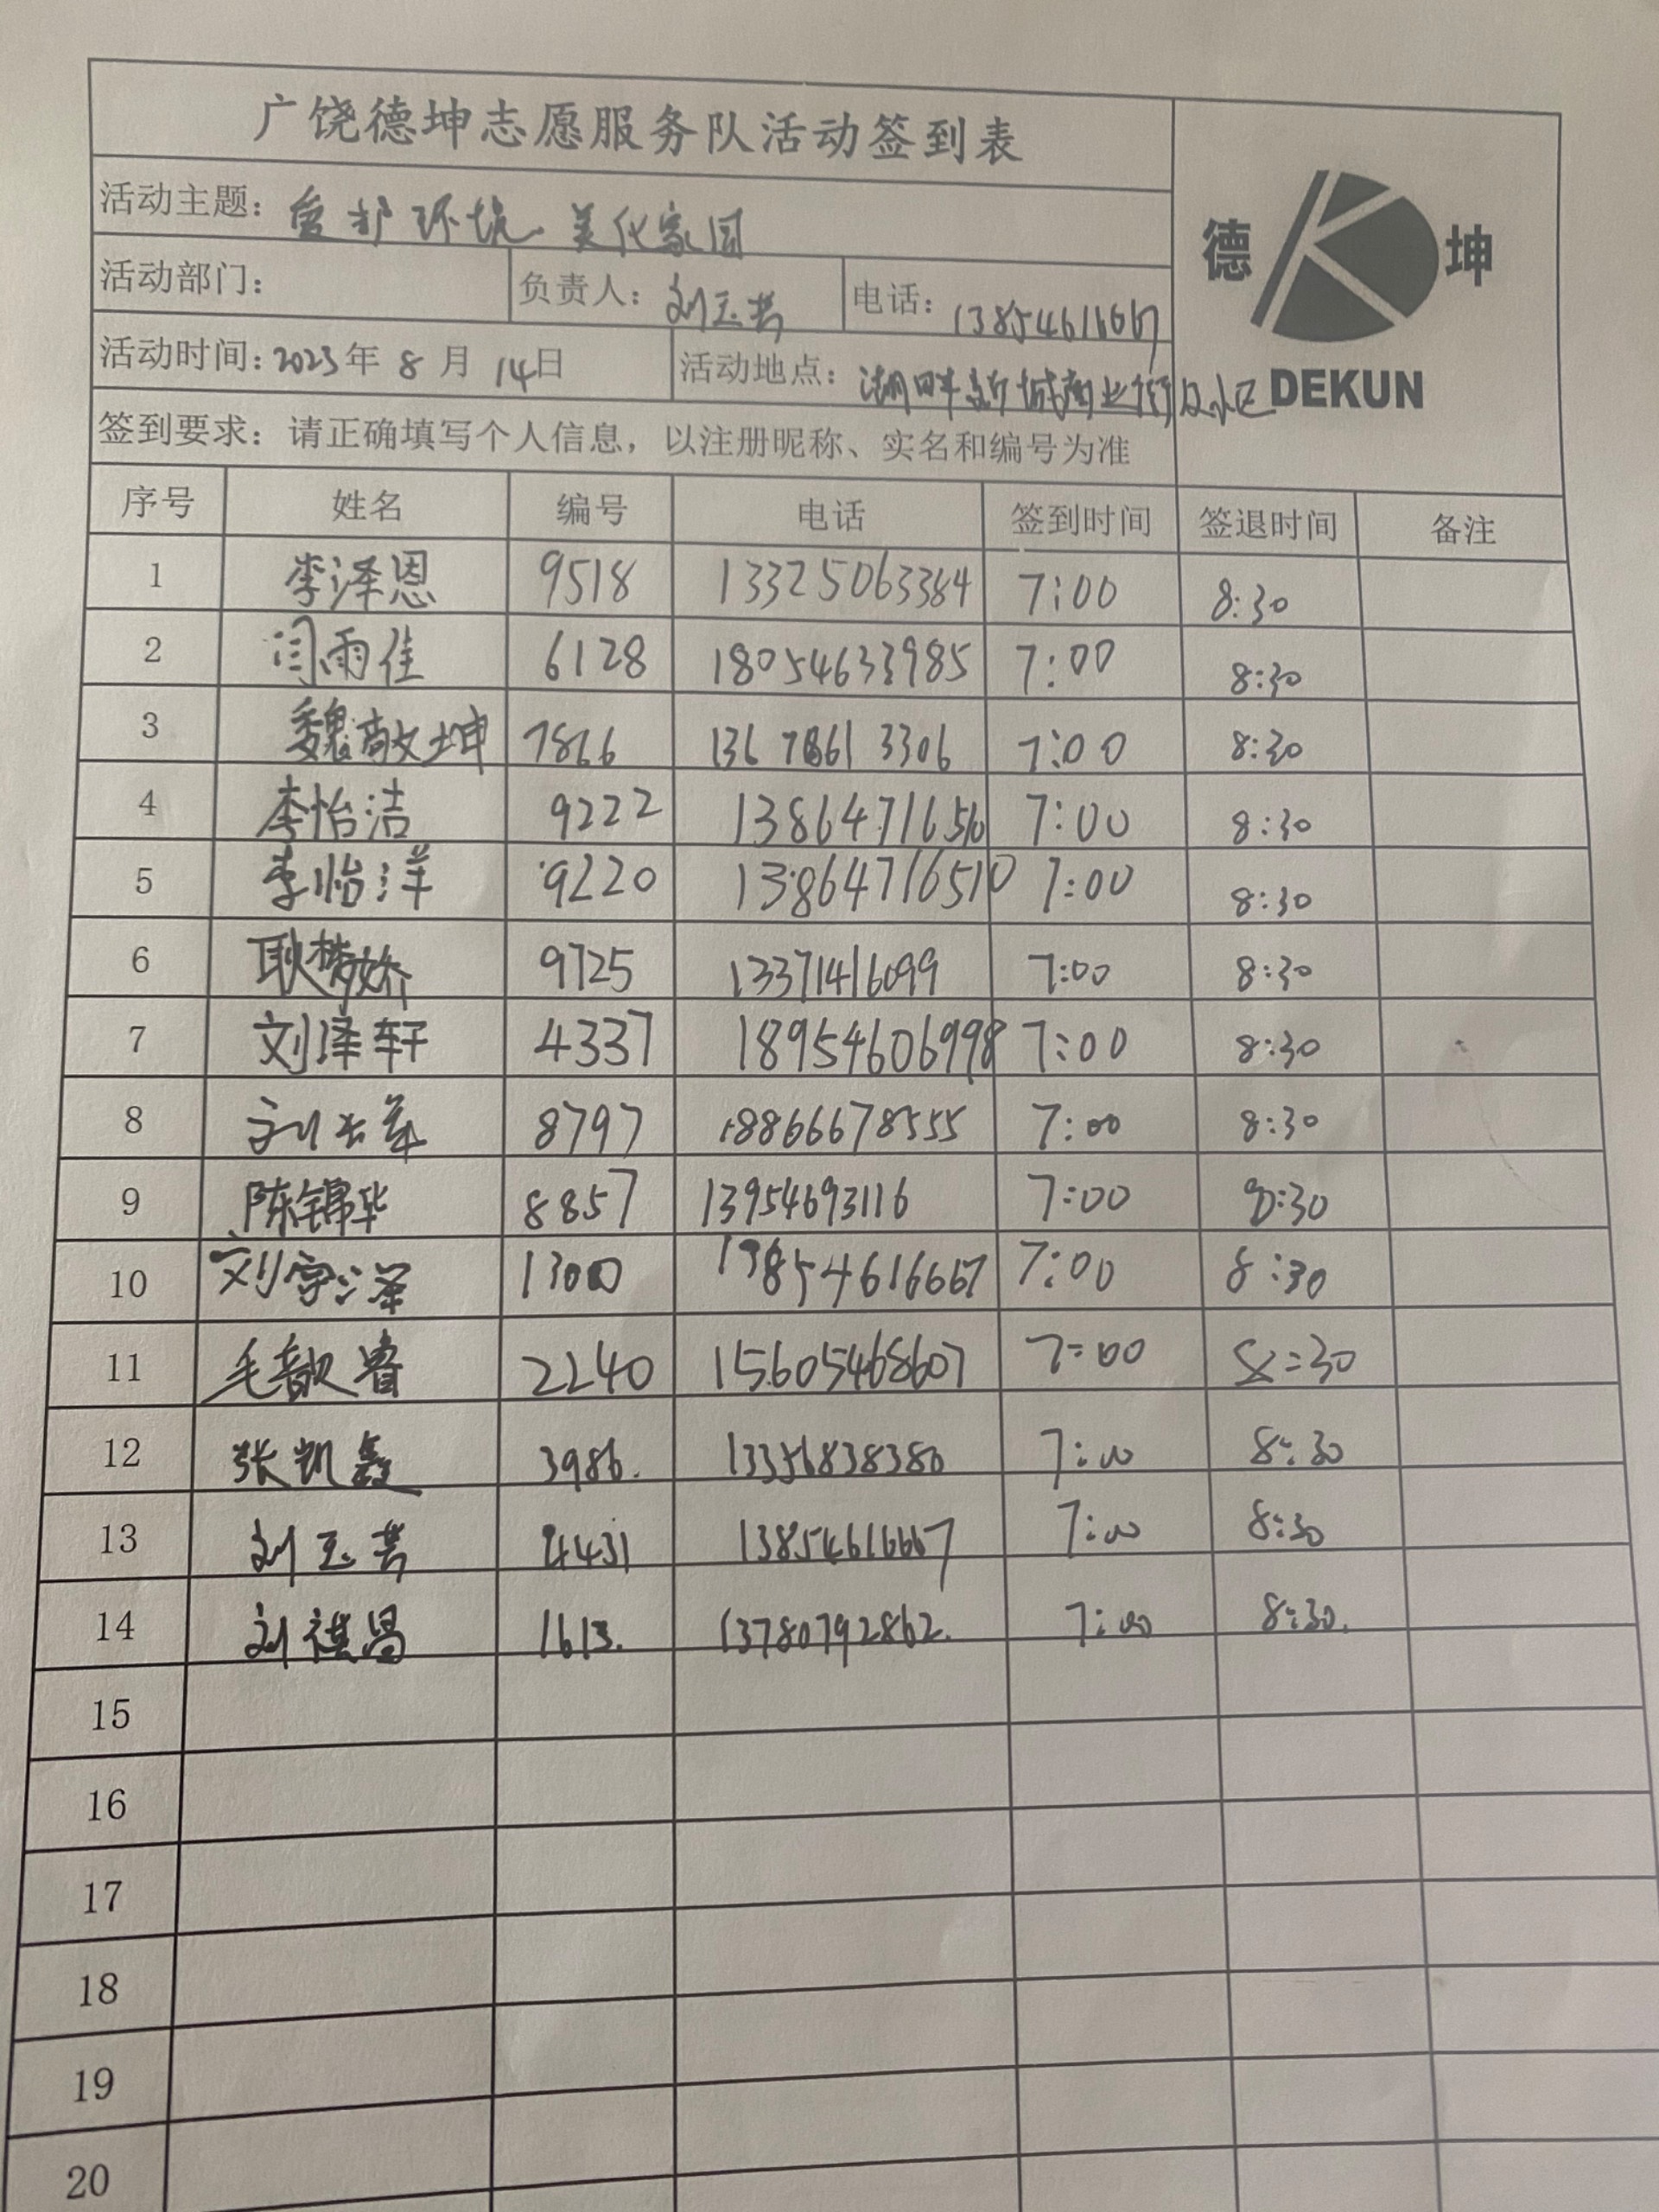 广饶德坤志愿服务队活动签到表
德 坤
DEKUN
活动主题：爱护环境、美化家园
活动部门： 负责人：刘玉芳 电话：13854616667
活动时间：2023年8月14日 活动地点：湖畔新城商业街及小区
签到要求：请正确填写个人信息，以注册昵称、实名和编号为准
序号 姓名 编号 电话 签到时间 签退时间 备注
1 李泽恩 9518 13325063384 7:00 8:30
2 闫雨佳 6128 18054633985 7:00 8:30
3 魏敬坤 7866 136 7861 3306 7:00 8:30
4 李怡洁 9222 13864716510 7:00 8:30
5 李怡洋 9220 13864716510 7:00 8:30
6 耿梦娇 9725 13371416099 7:00 8:30
7 刘泽轩 4337 18954606998 7:00 8:30
8 刘 8797 18866678555 7:00 8:30
9 陈锦华 8857 13954693116 7:00 8:30
10 刘宇泽 1300 13854616667 7:00 8:30
11 毛歆睿 2240 15605468607 7:00 8:30
12 张凯鑫 3986. 13356838380 7:00 8:30
13 刘玉芳 4431 13854616667 7:00 8:30
14 刘祺昌 1613. 13780792862. 7:00 8:30.
15
16
17
18
19
20